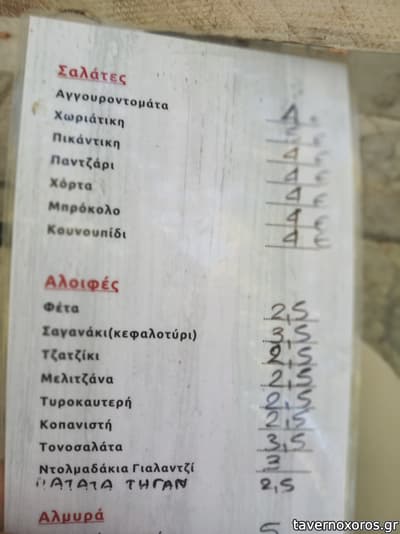 Σαλάτες
Αγγουροντομάτα
Χωριάτικη 4
Πικάντικη
Παντζάρι 4
Χόρτα 4
Μπρόκολο 4
Κουνουπίδι 4
Αλοιφές
Φέτα 2,5
Σαγανάκι(κεφαλοτύρι) 3,5
Τζατζίκι 2,5
Μελιτζάνα 2,5
Τυροκαυτερή 2,5
Κοπανιστή 2,5
Τονοσαλάτα 3,5
Ντολμαδάκια Γιαλαντζί 3
ΠΑΤΑΤΑ ΤΗΓΑΝ 2,5
Αλμυρά
tavernoxoros.gr